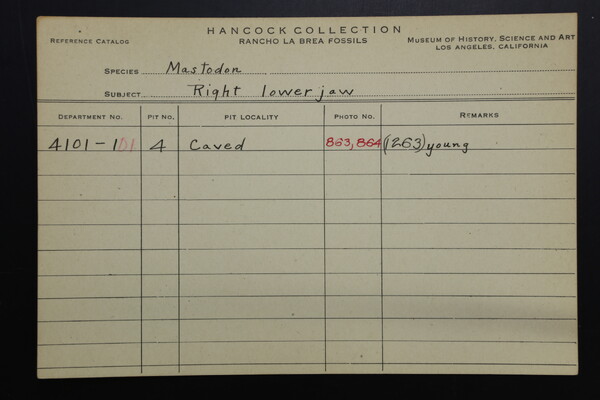 HANCOCK COLLECTION
REFERENCE CATALOG RANCHO LA BREA FOSSILS MUSEUM OF HISTORY, SCIENCE AND ART
LOS ANGELES, CALIFORNIA
SPECIES Mastodon
SUBJECT Right lower jaw
DEPARTMENT NO. PIT NO. PIT LOCALITY PHOTO NO. REMARKS
4101-101 4 Caved 863, 864 (1263) young